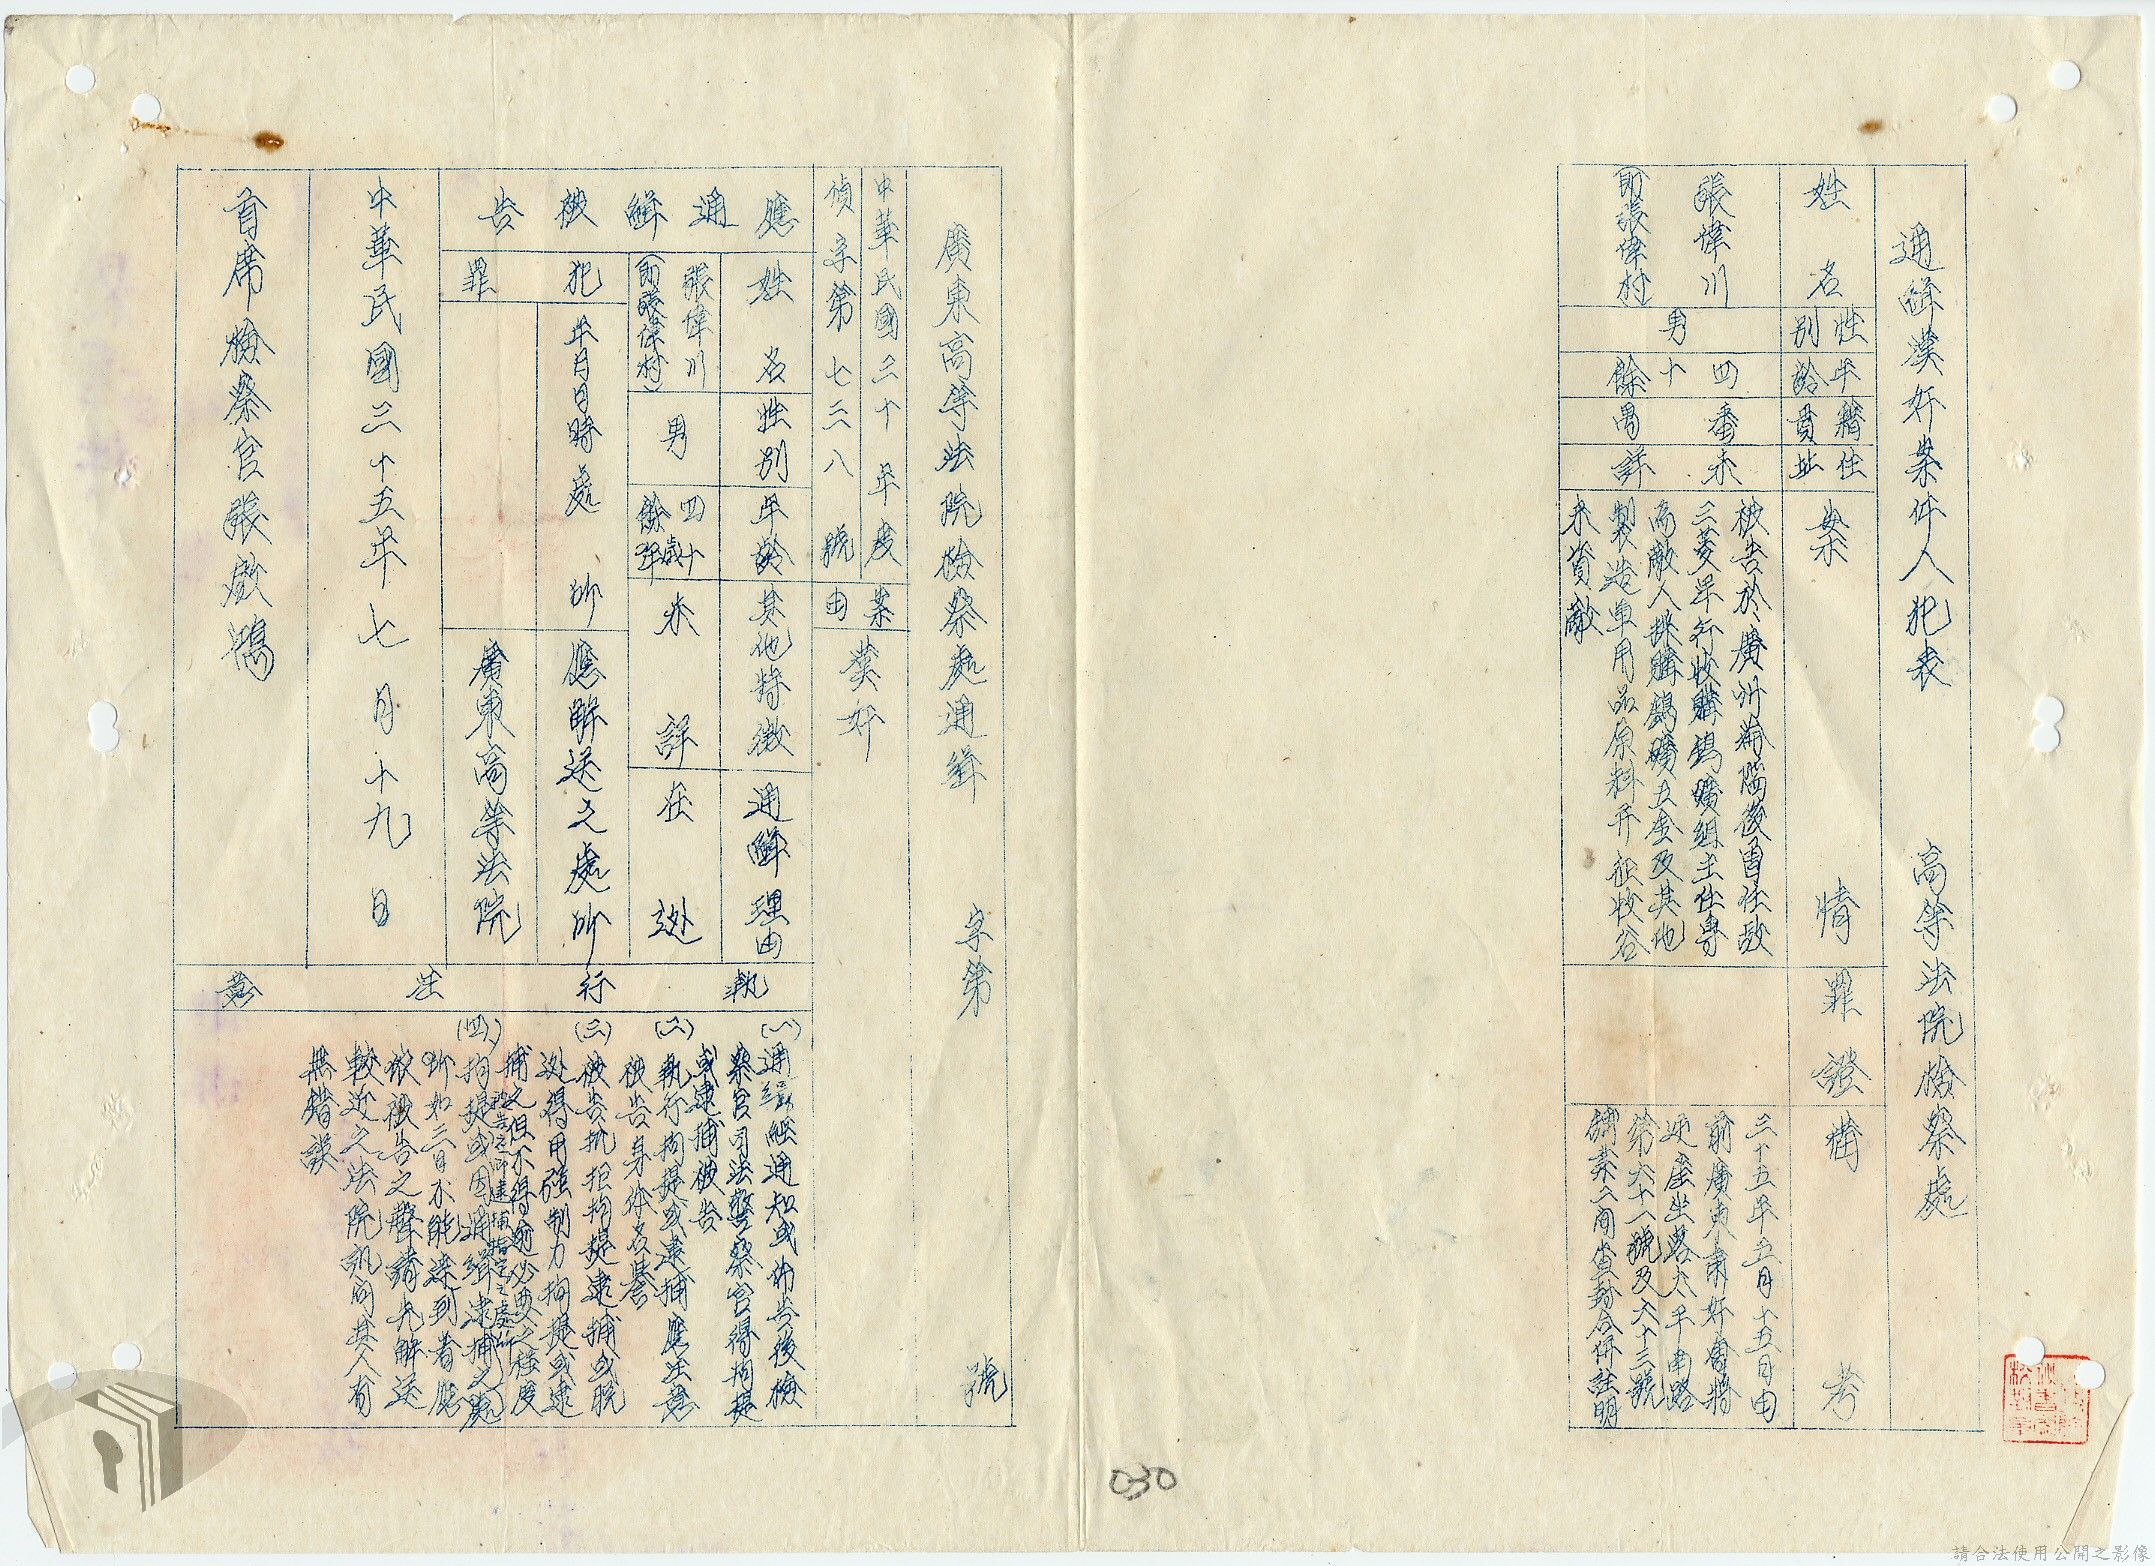 通緝漢奸案件人犯表　高等法院檢察處
姓名
性別
年齡
籍貫
住址
案情
罪證
備考
張偉川
(即張偉村)
男
四十餘
番禺
未詳
被告於廣州淪陷後曾任敵
三菱洋行收購鎢礦組主任專
為敵人採購鎢礦五金及其他
製造軍用品原料并征收谷
米資敵
三十五年五月十五日由
前廣東肅奸會將
逆產坐落太平南路
第六十一號及六十三號
舖業二間查封合併註明
廣東高等法院檢察處通緝　字第　號
中華民國三十年度
偵字第七三八號
案由
漢奸
應通緝被告
姓名
性別
年齡
其他特徵
通緝理由
張偉川
(即張偉村)
男
四十餘歲
未詳
在逃
犯罪
年月日時處所
應解送之處所
廣東高等法院
中華民國三十五年七月十九日
首席檢察官張啟鴻
執行注意
(一)通緝經通知或佈告後檢
察官司法警察官得拘提
或逮捕被告
(二)執行拘提或逮捕應注意
被告身体名譽
(三)被告抗拒拘提逮捕或脫
逃得用強制力拘提或逮
捕之但不得逾必要之程度
(四)拘提或因通緝逮捕之
被告之解送指定之處所
所如三日不能達到者應
依被告之聲請先解送
較近之法院訊問其人有
無錯誤
030
請合法使用公開之影像